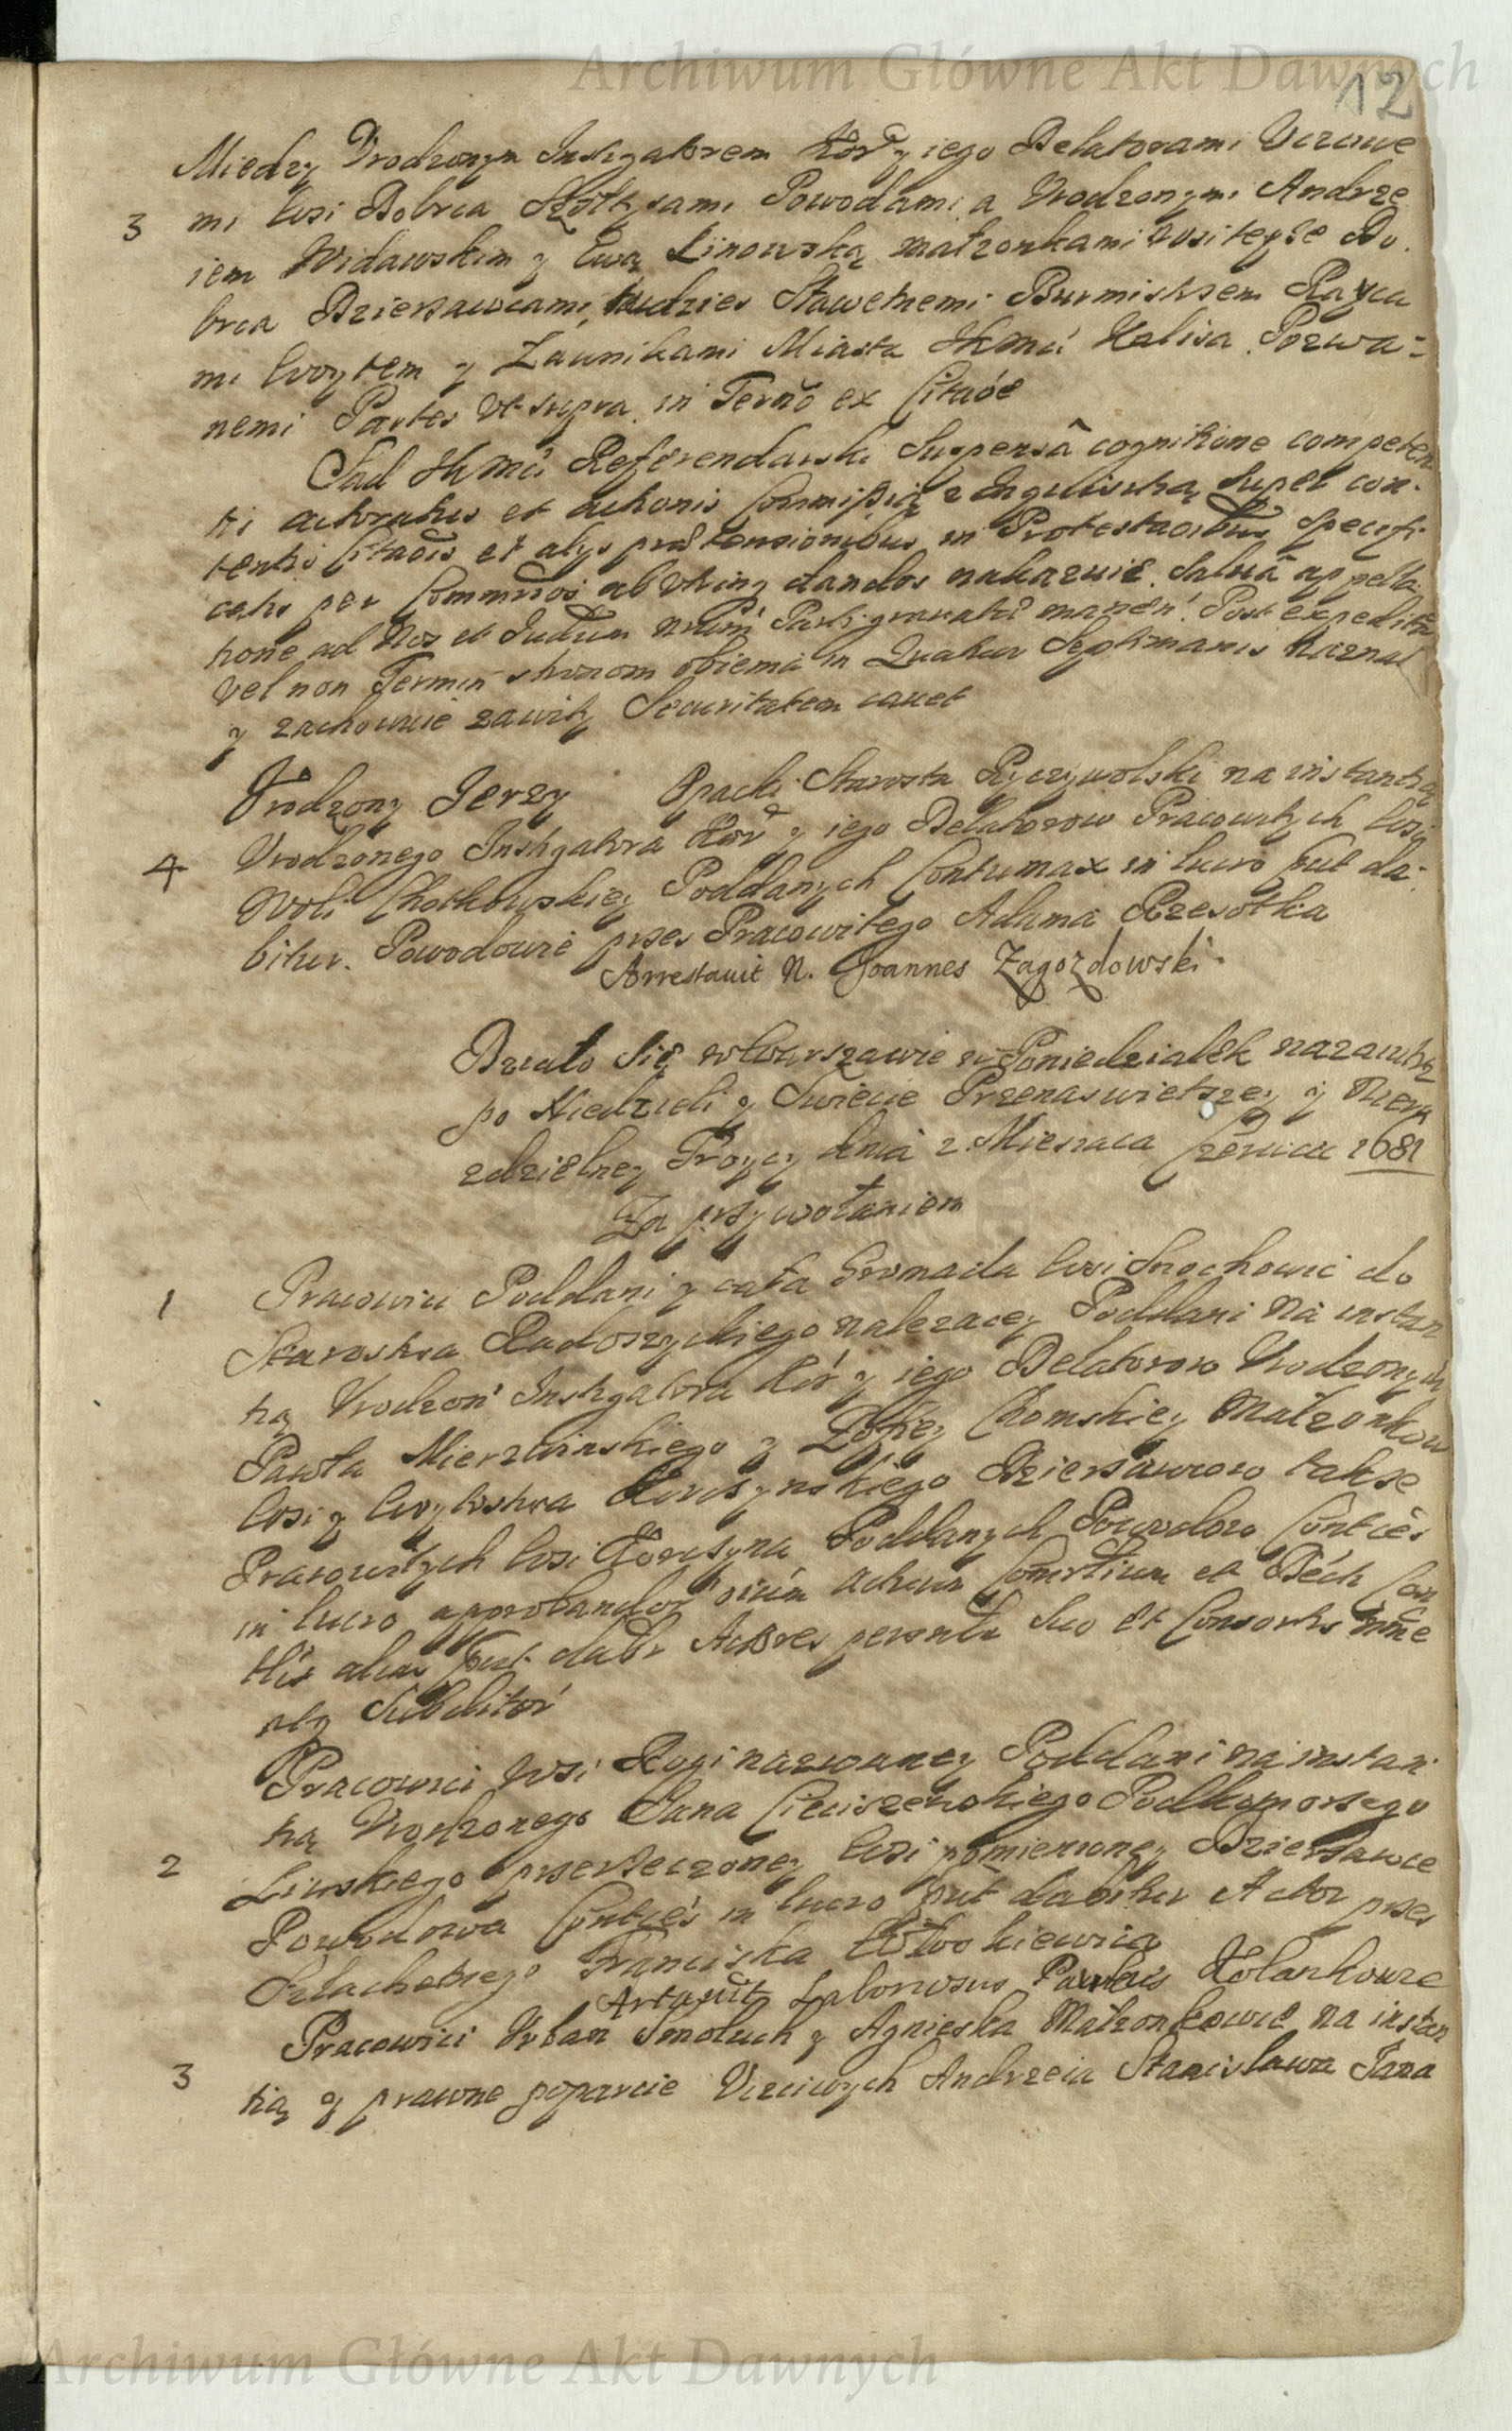 Archiwum Główne Akt Dawnych
12
Miedzy Vrodzonym Instigatorem Kor y iego Delatorami Vczciwe
3 mi wsi Dobrca Szołtysami Powodami a Vrodzonymi Andrze
iem Widawskim y Ewą Linowską małzonkami wsi teyze Do
brca Dzierzawcami, tudzies Sławetnemi Burmistrzem Rayca
mi Woytem y Ławnikami Miasta JKMci Kalisa Pozwa-
nemi Partes Vt supra in Termo ex Citaoe
Sąd JKMci Referendarski Suspensâ cognitione competen
ti actoratus et actionis Commissią z Inquisitią super con-
tentis Citaois et alys praetensionibus in Protestaoibus specifi
catis per Commrios ab vtrinq dandos nakazuie. Salvâ appella
tione ad Nos et Iudium nrum Parti gravatae manen. Post expeditu
vel non Termin stronom obiema in Quatuor Septimanis naznal
y zachowuie zawity Securitatem cavet
Vrodzony Jerzy Opacki Starosta Ryczywolski na instantią
4 Vrodzonego Instigatora Kor y iego Delatorow Pracowitych wsi
Woli Chotkowskiey Poddanych Contumax in lucro put da-
bitur. Powodowie przes Pracowitego Adama Rzesotka
Arrestavit N. Joannes Zagozdowski
Działo Się w Warszawie w Poniedziałek nazaiutrz
po Niedzieli y Swięcie Przenaswietszey y Niero
zdzielney Troycy dnia 2. Miesiaca Czerwca 1681
Za przywołaniem
1 Pracowici Poddani y cała Gromada wsi Snochowic do
Starostwa Radoszyckiego nalezacey Poddani na instan
tią Vrodzon Instigatora Kor y iego Delatorow Vrodzonych
Pawła Mierzwinskiego y Zofiey Chomskiey Małzonkow
wsi y Woytostwa Korczynskiego Dzierzawcow takze
Pracowitych wsi Korczyna Poddanych Powodow Contces
in lucro approbandor oium actuum Comrtium et Dech Con
tlis alias put dabr Actores personlr Suo et Consortis nme
alg Subditor
Pracowici wsi Rogi nazwaney Poddani na instan-
tią Vrodzonego Jana Cieciszewskiego Podkomorzego
2 Liwskiego przerzeczoney wsi pomienioney Dzierzawce
Powodowa Contces in lucro put dabitur Actor przes
Szlachetnego Franciska Witwskiewica
Artavit Laborosus Paulus Kolankowic
Pracowici Vrban Smoluch y Agnieska Małzonkowie na instan
3 tią y prawne poparcie Vczciwych Andrzeia Stanisława Jana
Archiwum Główne Akt Dawnych